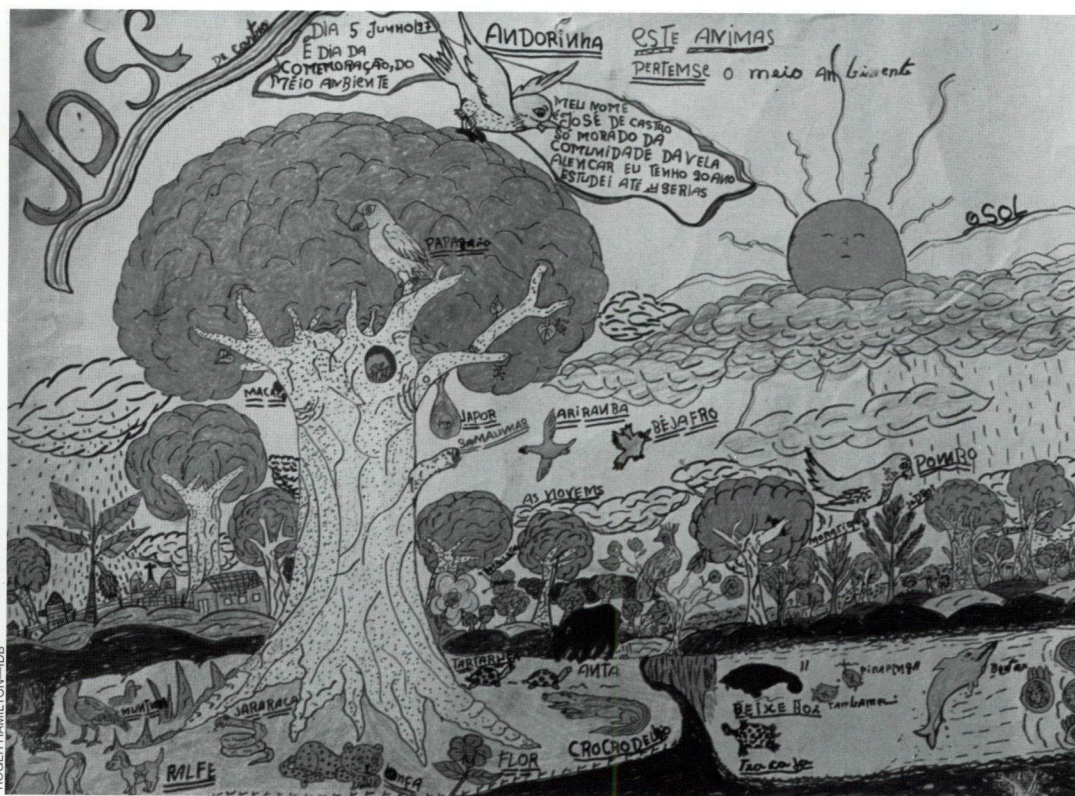 JOSE
DE CASTRO
DIA 5 JUNHO 97
É DIA DA
COMEMORAÇÃO, DO
MEIO ANBIENTE
ANDORINHA
ESTE ANIMAS
PERTEMSE o meio Anbiuente
MEU NOME
É JOSÉ DE CASTRO
SÓ MORADO DA
COMUNIDADE DA VELA
ALENCAR EU TENHO 20 ANO
ESTUDEI ATÉ 4 SERIAS
O SOL
JAPOR
SAMAUMAR
ARIRAMBA
BEJAFRO
POMBO
AS NOVEMS
TARTARUGA
ANTA
MUNTUM
JARARACA
CROCRODELHO
RALFE
ONFA
FLOR
BEIXE BOI
PIRAPINGA
TAMBAQUI
ROGER HAMILTON—IDB